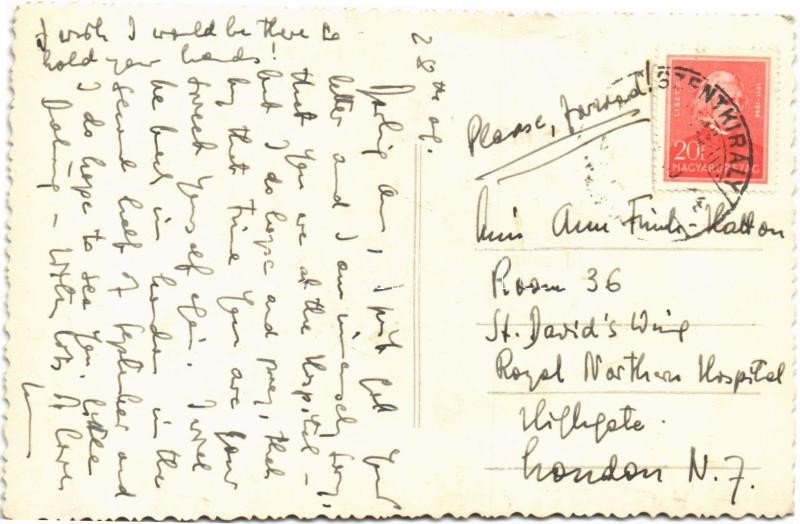 28th of.
Darling Ann, I just got your
letter and I am immensely sorry,
that you are at the Hospital –
but I do hope and pray, that
by that time you are your
sweet yourself again. I will
be back in London in the
second half of September and
I do hope to see you, little
Darling – with lots of love
I wish I would be there to
hold your hands!
Please, forward!
Miss Ann Finch-Hatton
Room 36
St. David's Wing
Royal Northern Hospital
Highgate.
London N. 7.
SZENTKIRÁLY
LISZT
1811-1886
20f
MAGYARORSZÁG